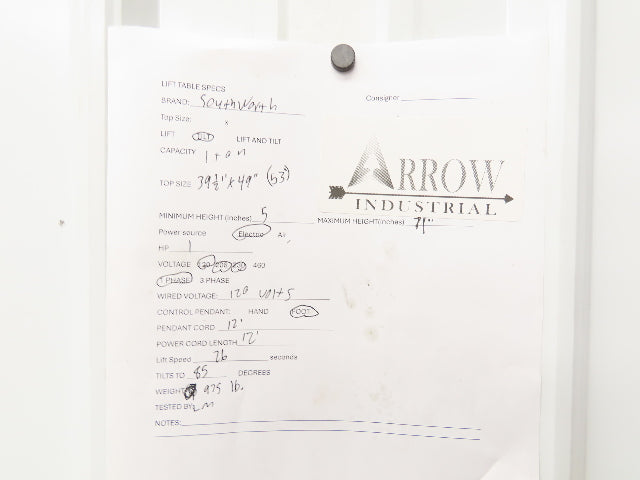 LIFT TABLE SPECS
BRAND: Southworth
Consigner
Top Size: x
LIFT TILT LIFT AND TILT
CAPACITY 1 ton
TOP SIZE 39 1/2" x 49"
ARROW
INDUSTRIAL
MINIMUM HEIGHT (inches) 5 MAXIMUM HEIGHT(inches) 71"
Power source Electric Air
HP 1
VOLTAGE 120 208 230 460
1 PHASE 3 PHASE
WIRED VOLTAGE: 120 volts
CONTROL PENDANT: HAND FOOT
PENDANT CORD 12'
POWER CORD LENGTH 12'
Lift Speed 26 seconds
TILTS TO 85 DEGREES
WEIGHT 975 lb.
TESTED BY: LM
NOTES: